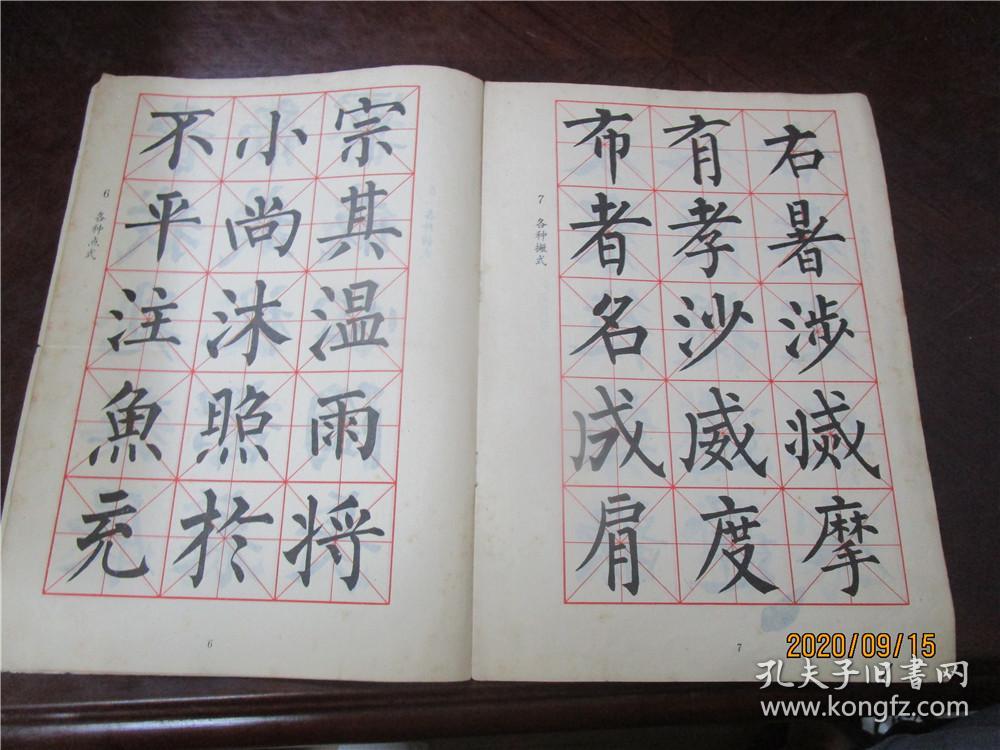 6 各种点式
不小宗
平尚其
注沫温
魚照雨
充於将
6
7 各种撇式
布有右
者孝暑
名沙涉
成威滅
肩度摩
7
2020/09/15
孔夫子旧书网
www.kongfz.com